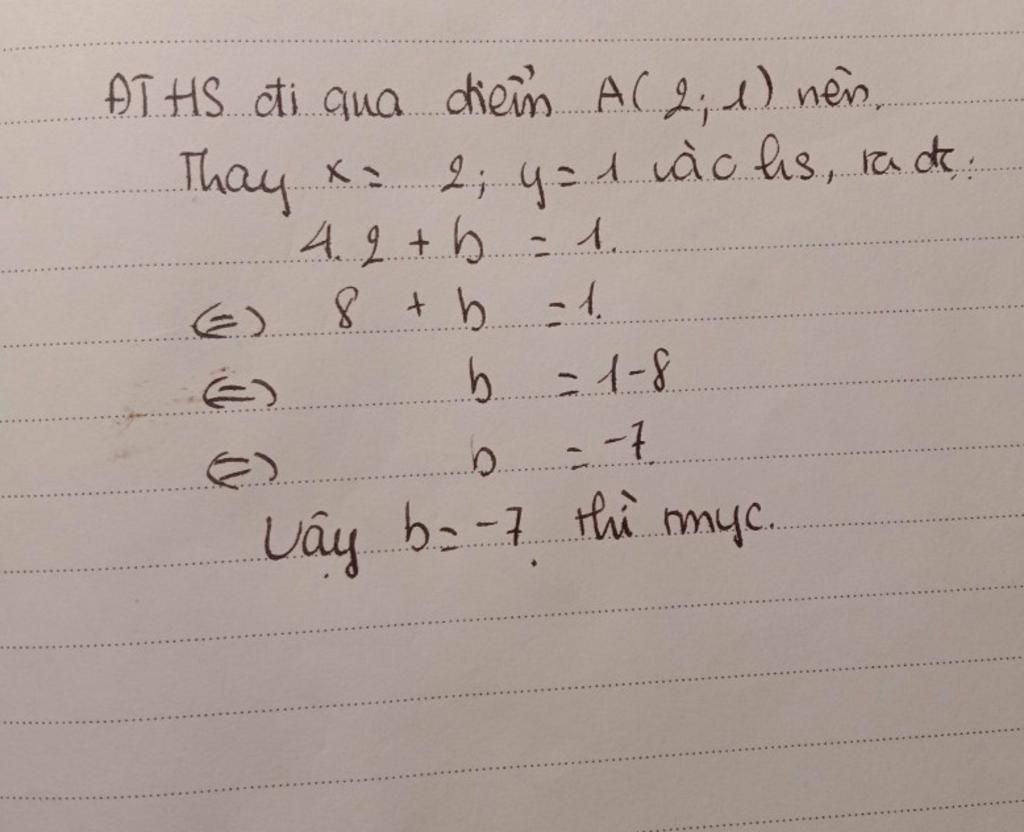 ĐTHS đi qua điểm A(2;1) nên.
Thay x = 2; y = 1 vào hs, ta đc:
4.2 + b = 1.
⇔ 8 + b = 1.
⇔ b = 1-8
⇔ b = -7.
Vậy b = -7 thì tmyc.